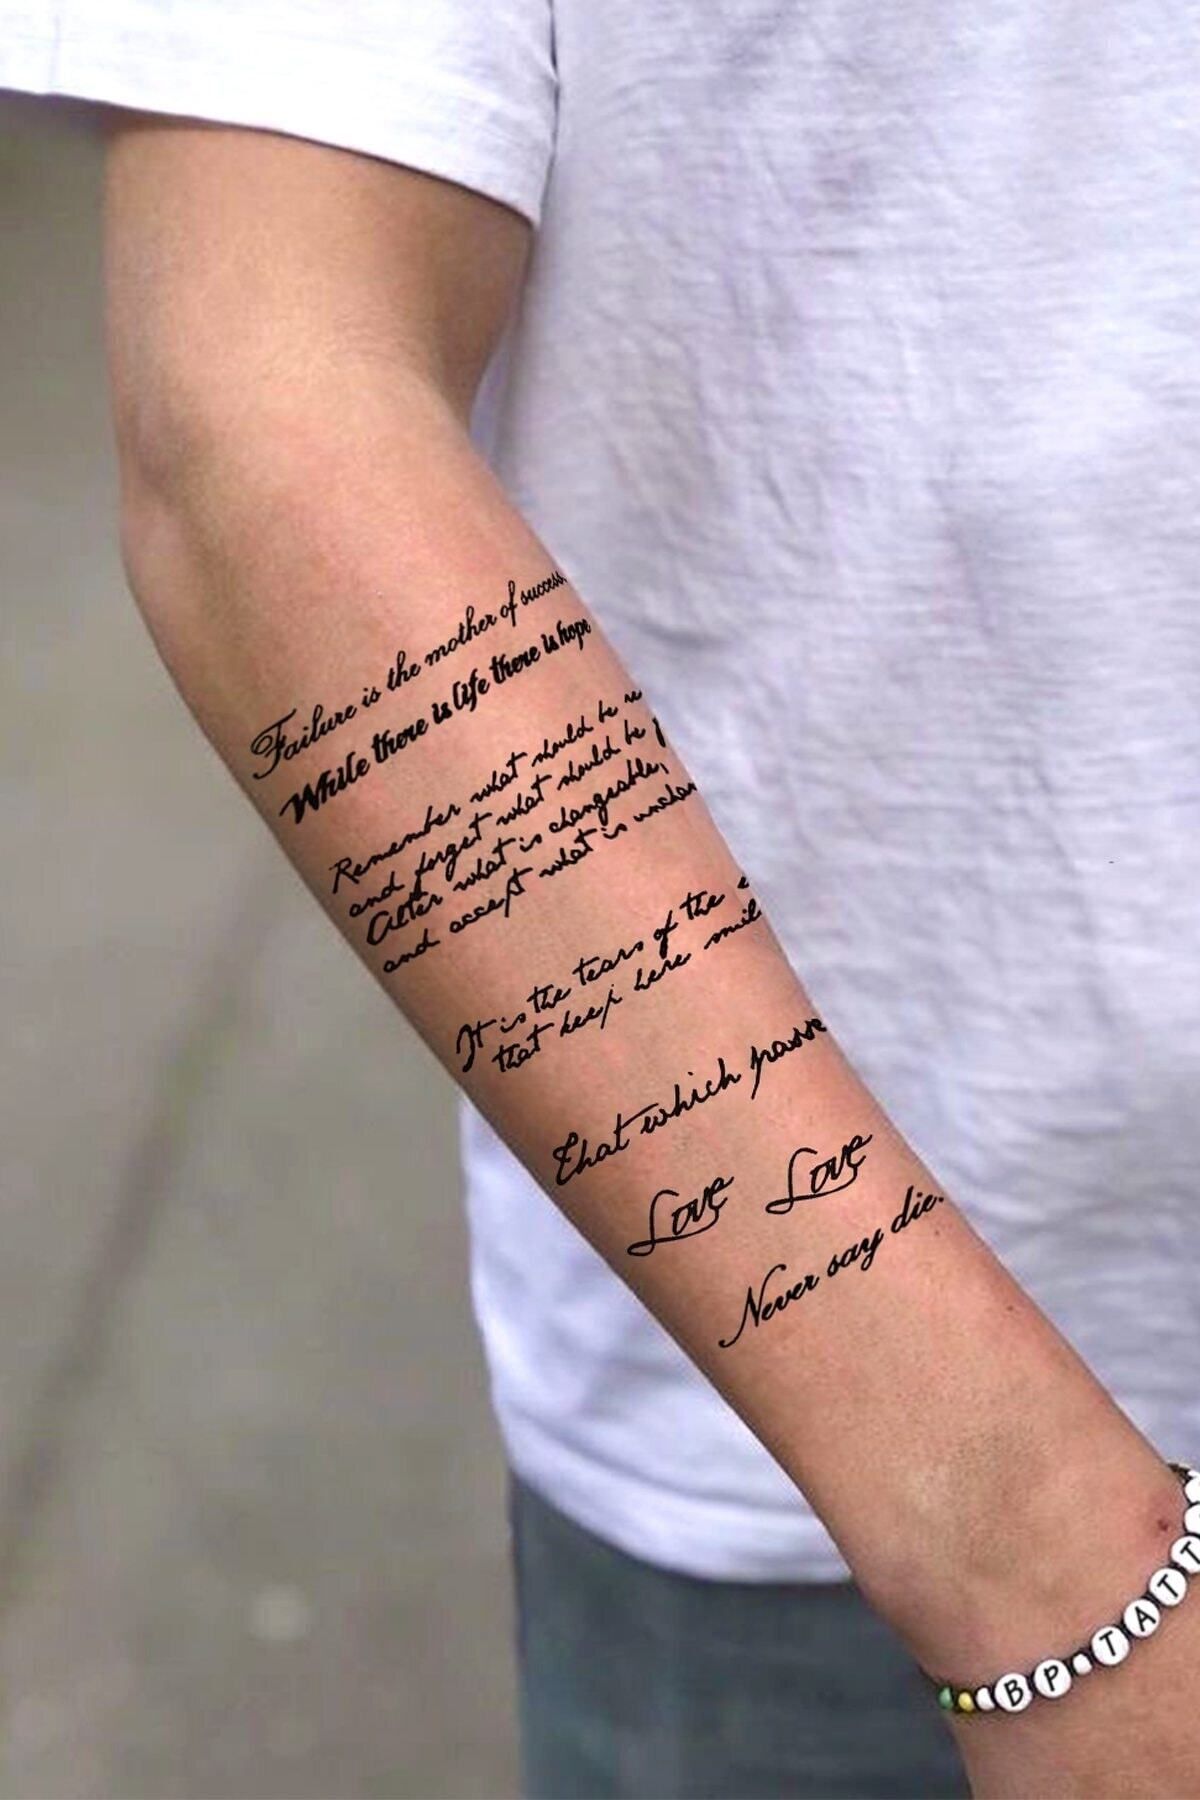 Failure is the mother of success.
While there is life there is hope
Remember what should be
and forget what should be
Alter what is changeable,
and accept what is
It is the tears of the
that keep here
That which passe
Love Love
Never say die.
BP TATT